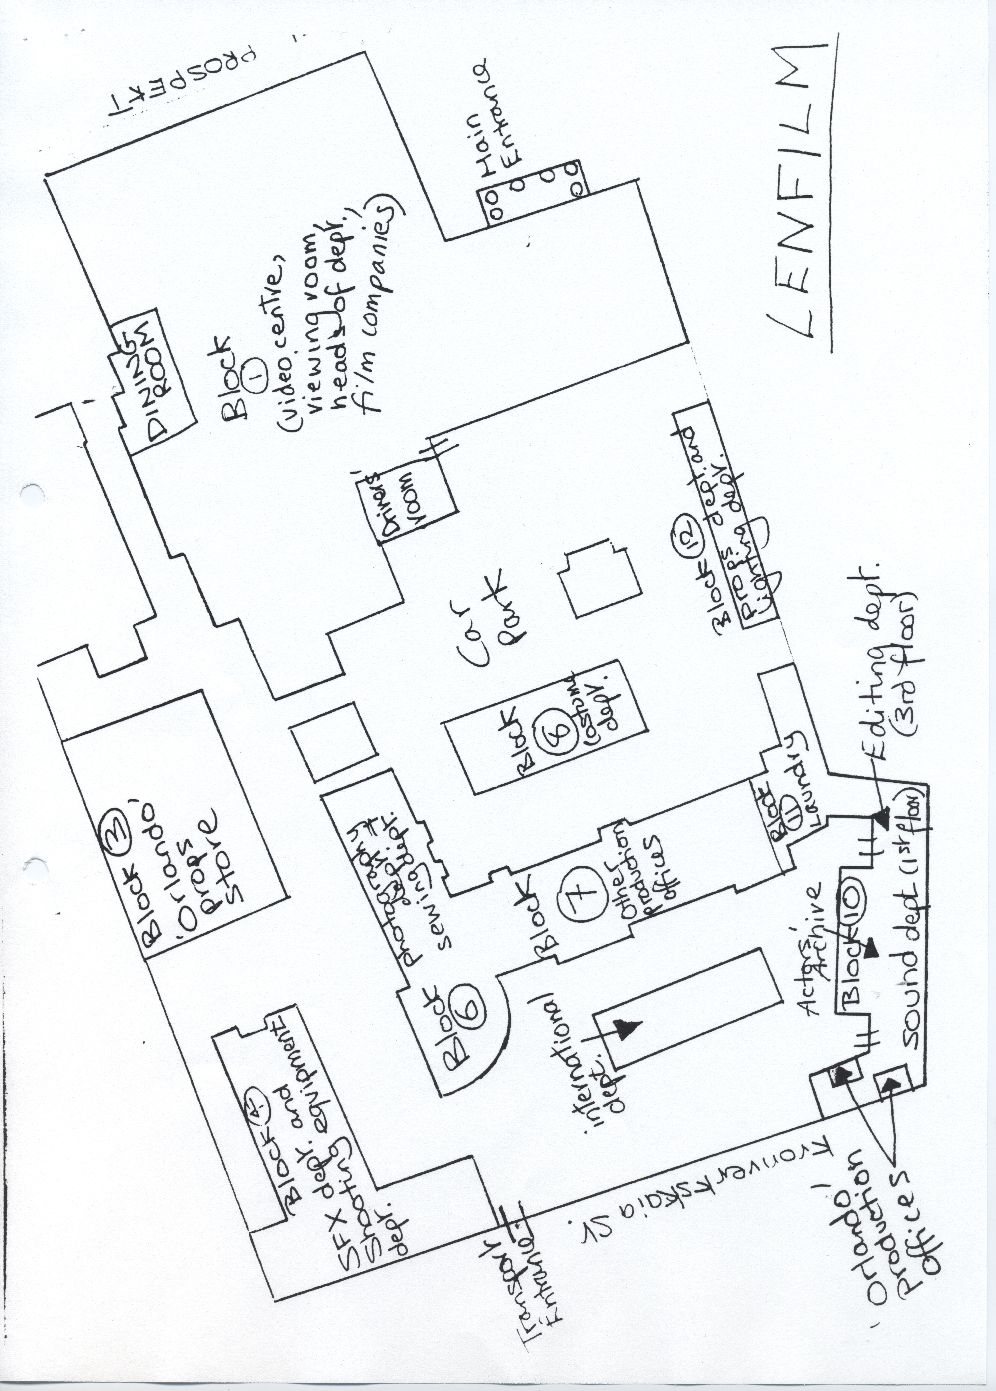 LENFILM
PROSPEKT
Main
Entrance
DINING
ROOM
Block
1
(video centre,
viewing room,
heads of dept.,
film companies)
Drivers'
room
Car
Park
Block 12
Props dept. and
Lighting dept.
Block 3
'Orlando'
props
store
Block
8
Costume
dept.
Block 6
photography
dept. +
sewing dept.
Block
7
Other
Production
offices
Block
11
Laundry
Editing dept.
(3rd floor)
Actors'
Archive
Block 10
Sound dept (1st floor)
international
dept.
Block 4
SFX dept. and
Shooting equipment
dept.
Transport
Entrance
Kronverkskaia St.
'Orlando'
Production
Offices